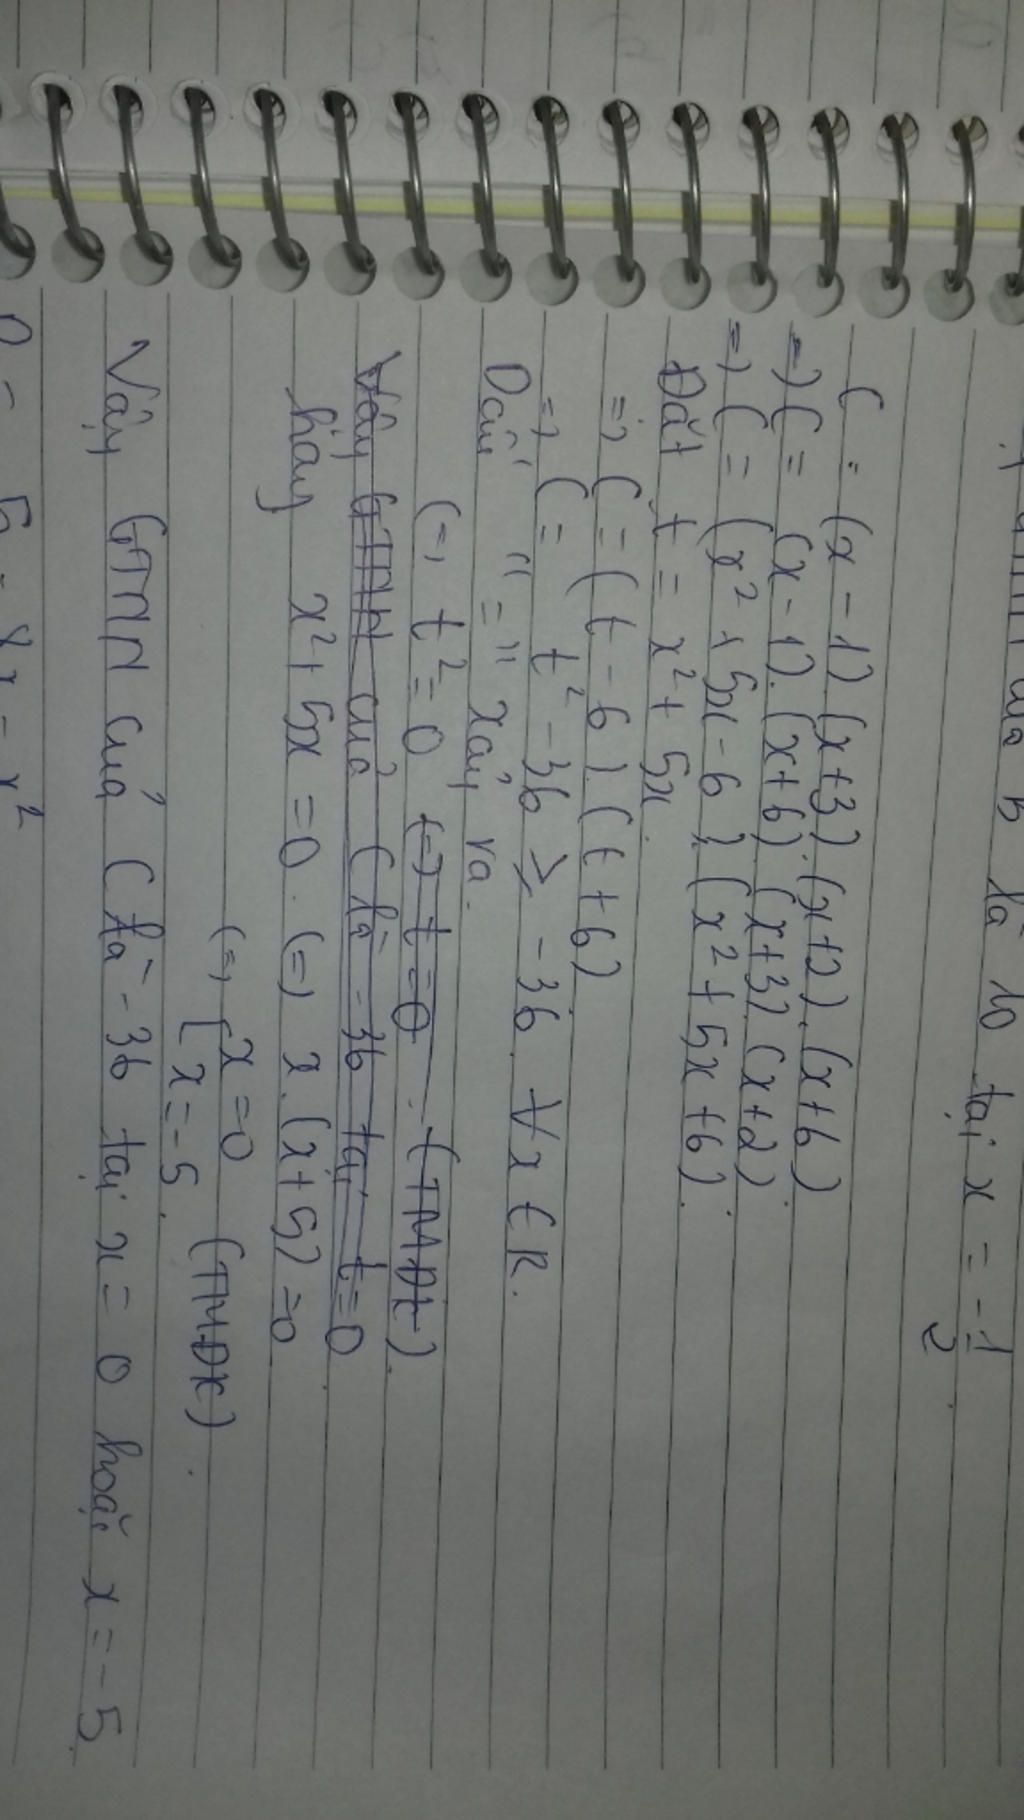 là 10 tại x = -1/2.
C = (x - 1)(x+3).(x+2).(x+6)
=> C = (x - 1).(x+6).(x+3).(x+2)
=> C = (x² + 5x - 6).(x² + 5x + 6).
Đặt t = x² + 5x.
=> C = (t - 6).(t + 6)
=> C = t² - 36 ≥ -36 ∀x ∈ R.
Dấu "=" xảy ra.
(=) t² = 0 (=) t = 0. (TMĐK).
Vậy GTNN của C là -36 tại t=0
hay x² + 5x = 0. (=) x.(x+5) = 0
(=) [x = 0
[x = -5. (TMĐK).
Vậy GTNN của C là - 36 tại x = 0 hoặc x = - 5.